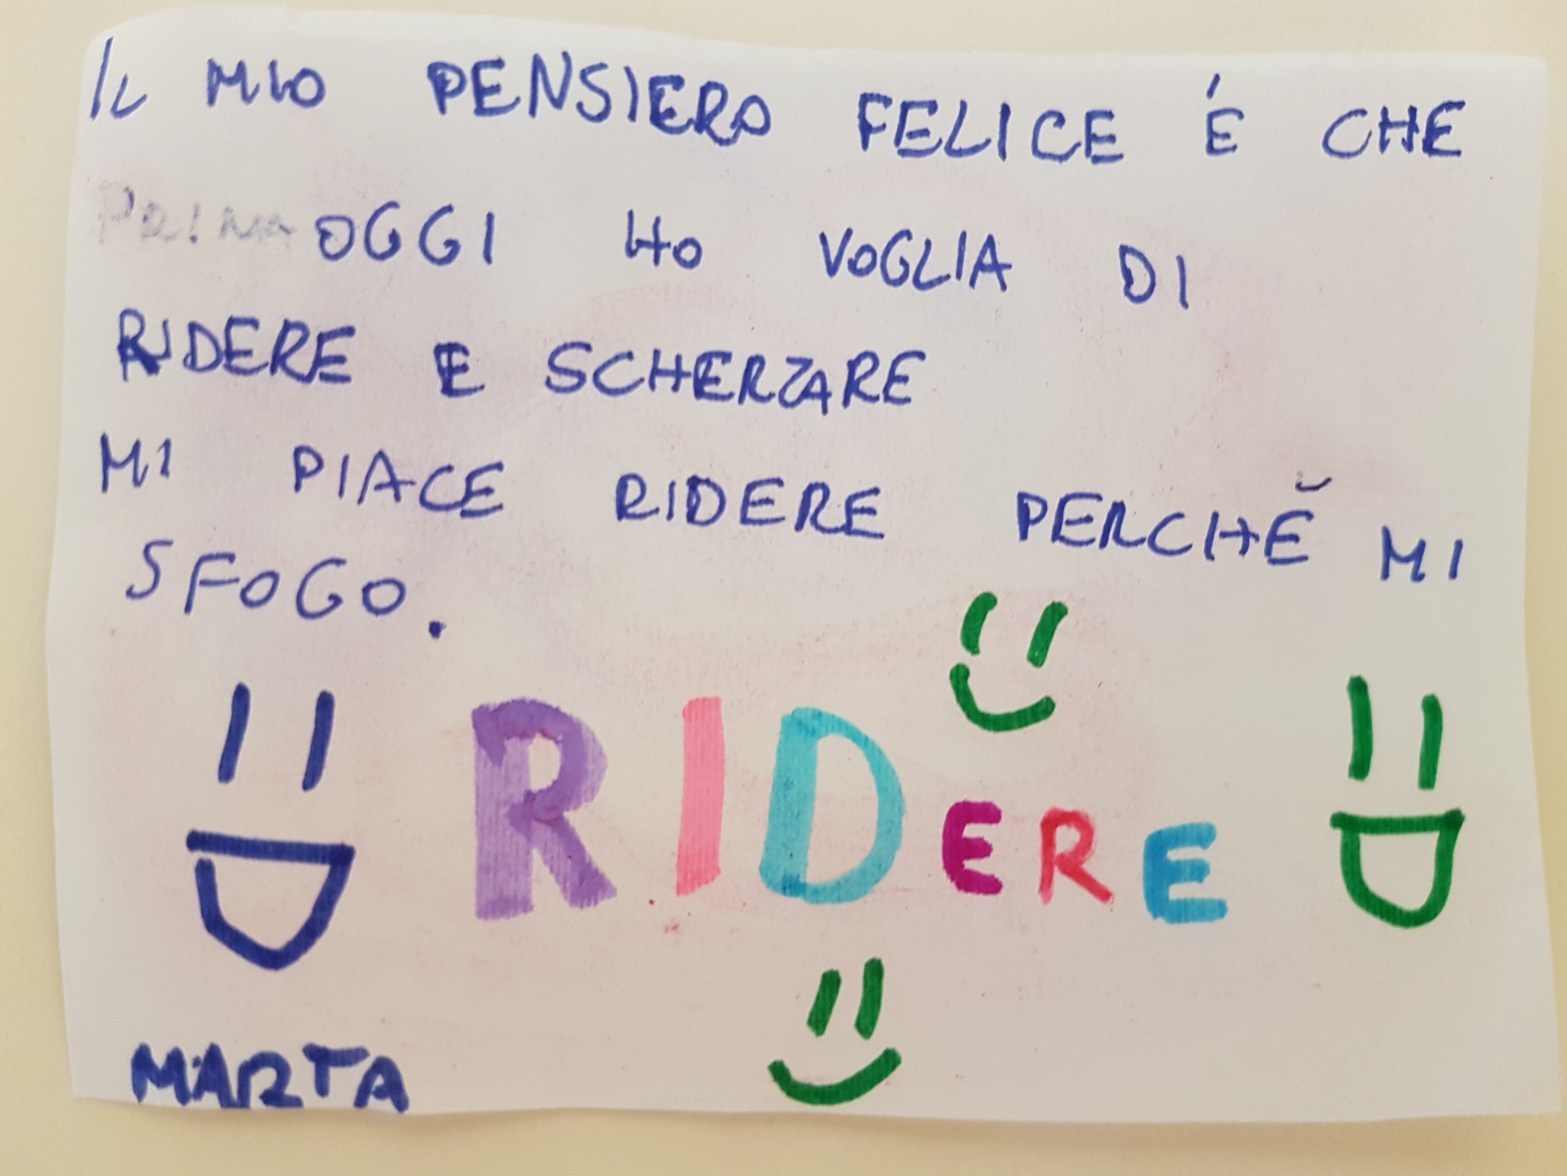 IL MIO PENSIERO FELICE É CHE
PRIMA OGGI HO VOGLIA DI
RIDERE E SCHERZARE
MI PIACE RIDERE PERCHĔ MI
SFOGO.
RIDERE
MARTA